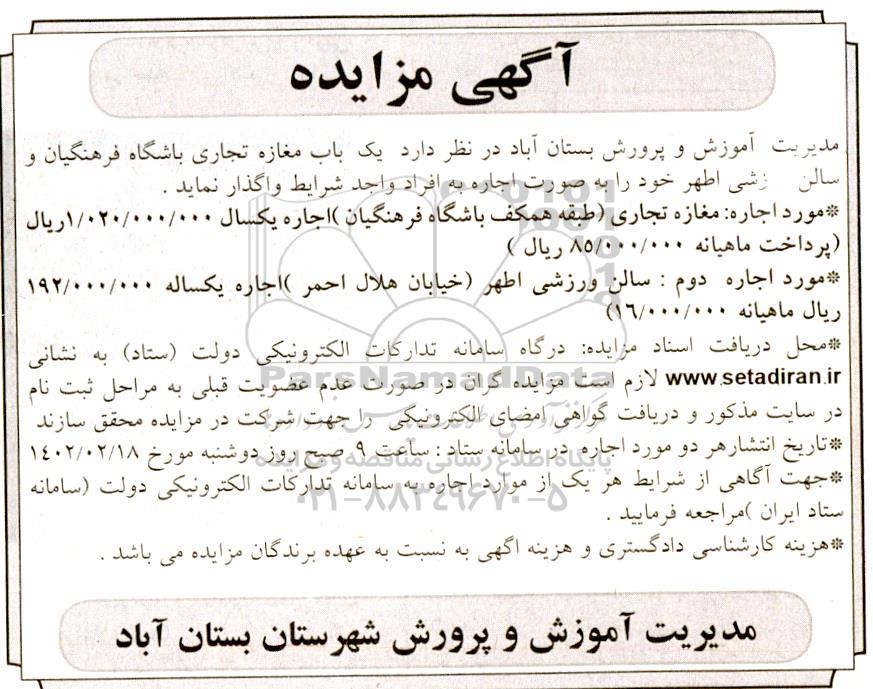 آگهی مزایده
مدیریت آموزش و پرورش بستان آباد در نظر دارد یک باب مغازه تجاری باشگاه فرهنگیان و
سالن زشی اطهر خود را به صورت اجاره به افراد واجد شرایط واگذار نماید .
*مورد اجاره: مغازه تجاری (طبقه همکف باشگاه فرهنگیان )اجاره یکسال ۱/۰۲۰/۰۰۰/۰۰۰ریال
(پرداخت ماهیانه ۸۵/۰۰۰/۰۰۰ ریال )
*مورد اجاره دوم : سالن ورزشی اطهر (خیابان هلال احمر )اجاره یکساله ۱۹۲/۰۰۰/۰۰۰
ریال ماهیانه ۱۶/۰۰۰/۰۰۰)
*محل دریافت اسناد مزایده: درگاه سامانه تدارکات الکترونیکی دولت (ستاد) به نشانی
www.setadiran.ir لازم است مزایده گران در صورت عدم عضویت قبلی به مراحل ثبت نام
در سایت مذکور و دریافت گواهی امضای الکترونیکی را جهت شرکت در مزایده محقق سازند
*تاریخ انتشارهر دو مورد اجاره در سامانه ستاد : ساعت ۹ صبح روز دوشنبه مورخ ۱٤۰۲/۰۲/۱۸
*جهت آگاهی از شرایط هر یک از موارد اجاره به سامانه تدارکات الکترونیکی دولت (سامانه
ستاد ایران )مراجعه فرمایید .
*هزینه کارشناسی دادگستری و هزینه اگهی به نسبت به عهده برندگان مزایده می باشد .
مدیریت آموزش و پرورش شهرستان بستان آباد
ParsNamadData
پایگاه اطلاع رسانی مناقصه و مزایده
۰۲۱-۸۸۳٤۹۶۷۰-۵